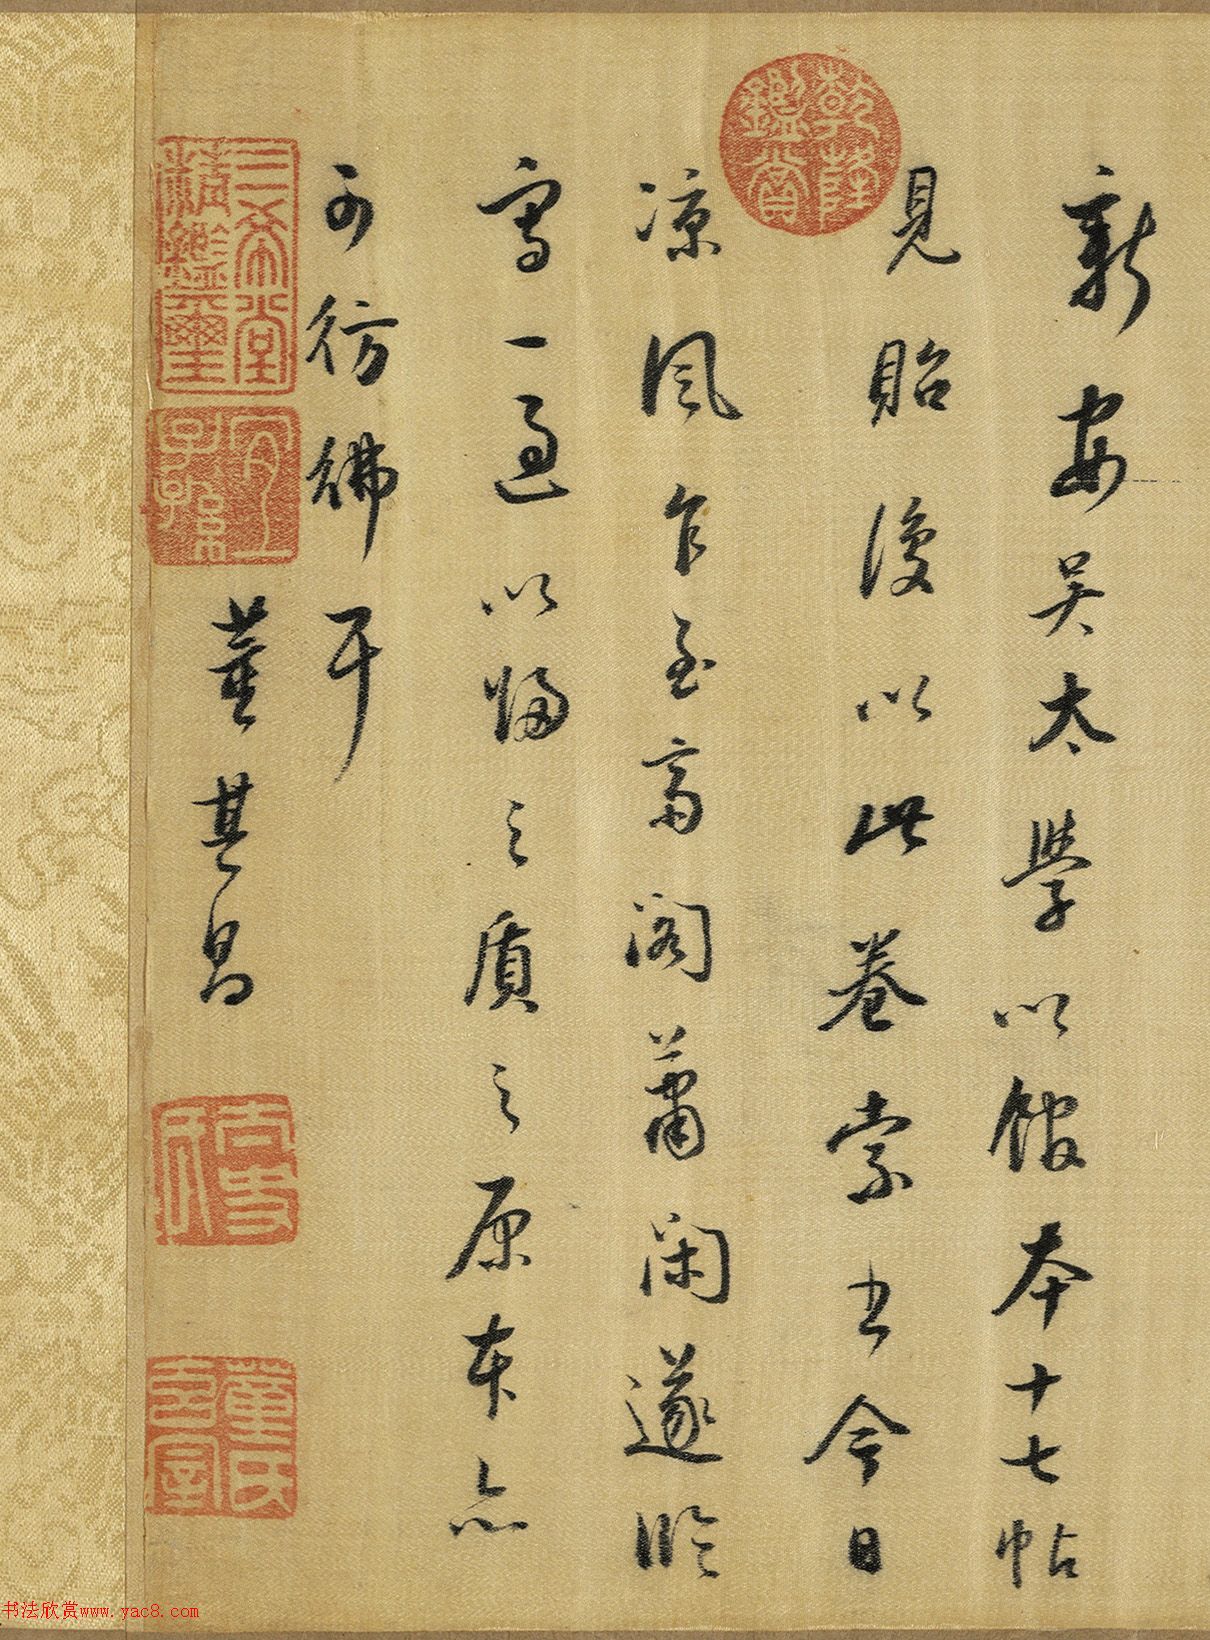 新安吴太學以館本十七帖
見貽復以此卷索书今日
凉風乍至高阁蕭闲遂临
寫一過以歸之質之原本亦
可彷彿耳
董其昌
乾隆鑑賞
三希堂精鑑璽
宜子孫
董氏
书法欣赏www.yac8.com